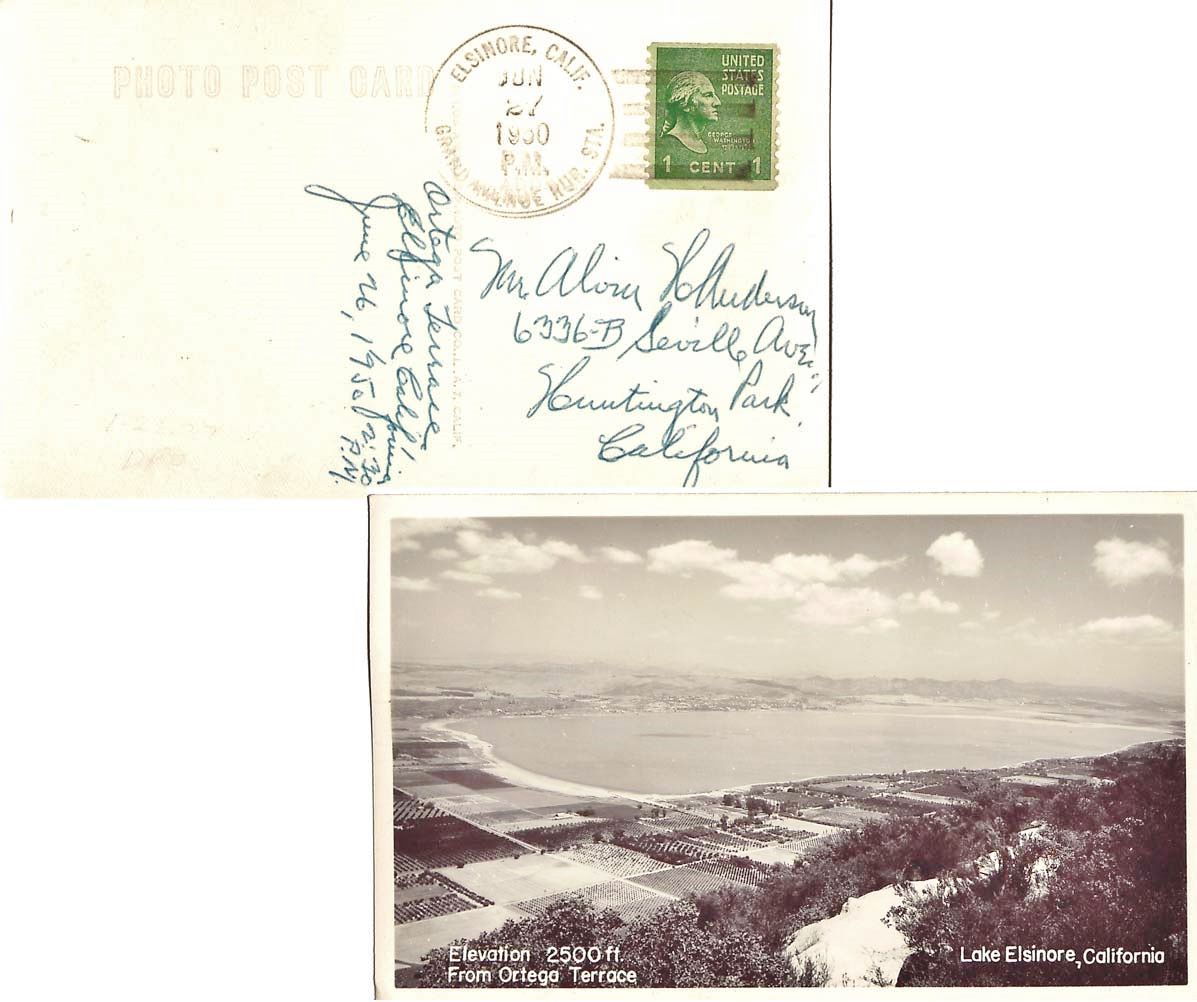 PHOTO POST CARD
ELSINORE, CALIF.
JUN
27
1950
P.M.
GRAND AVENUE RUR. STA.
UNITED
STATES
POSTAGE
GEORGE
WASHINGTON
1 CENT 1
Ortega Terrace
Elsinore California
June 26, 1950 2:30
P.M.
POST CARD CO., L.A. CALIF.
Mr. Alvin H Anderson
6336-B Seville Ave.,
Huntington Park
California
Elevation 2500 ft.
From Ortega Terrace
Lake Elsinore, California